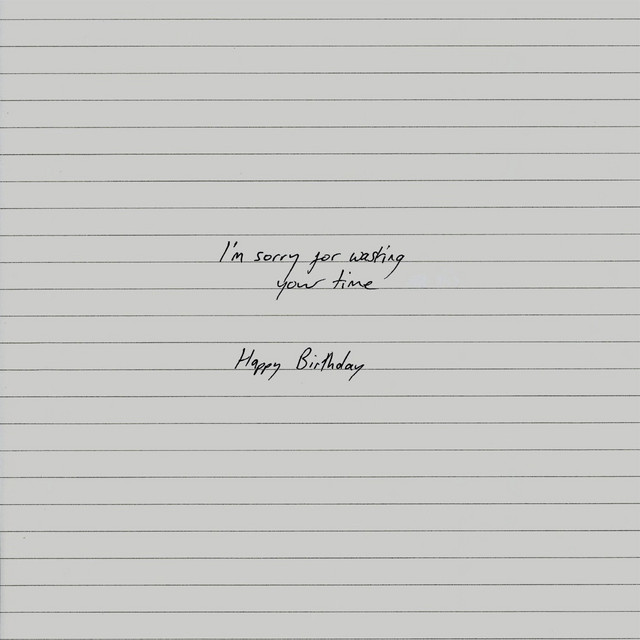 I'm sorry for wasting
your time
Happy Birthday